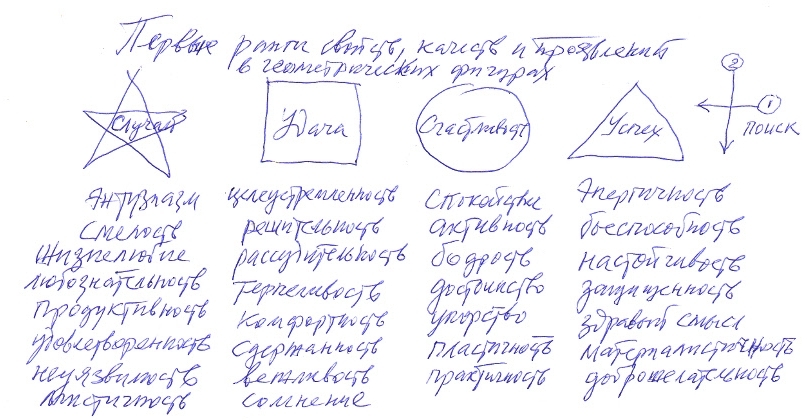 Первые ранги свойств, качеств и проявлений
в геометрических фигурах
Случай Удача Счастливость Успех
② ① поиск
Энтузиазм целеустремленность спокойствие Энергичность
смелость решительность активность боеспособность
жизнелюбие рассудительность бодрость настойчивость
любознательность терпеливость достоинство защищенность
продуктивность комфортность упорство здравый смысл
удовлетворенность сдержанность пластичность материалистичность
неуязвимость вежливость практичность доброжелательность
сомнение